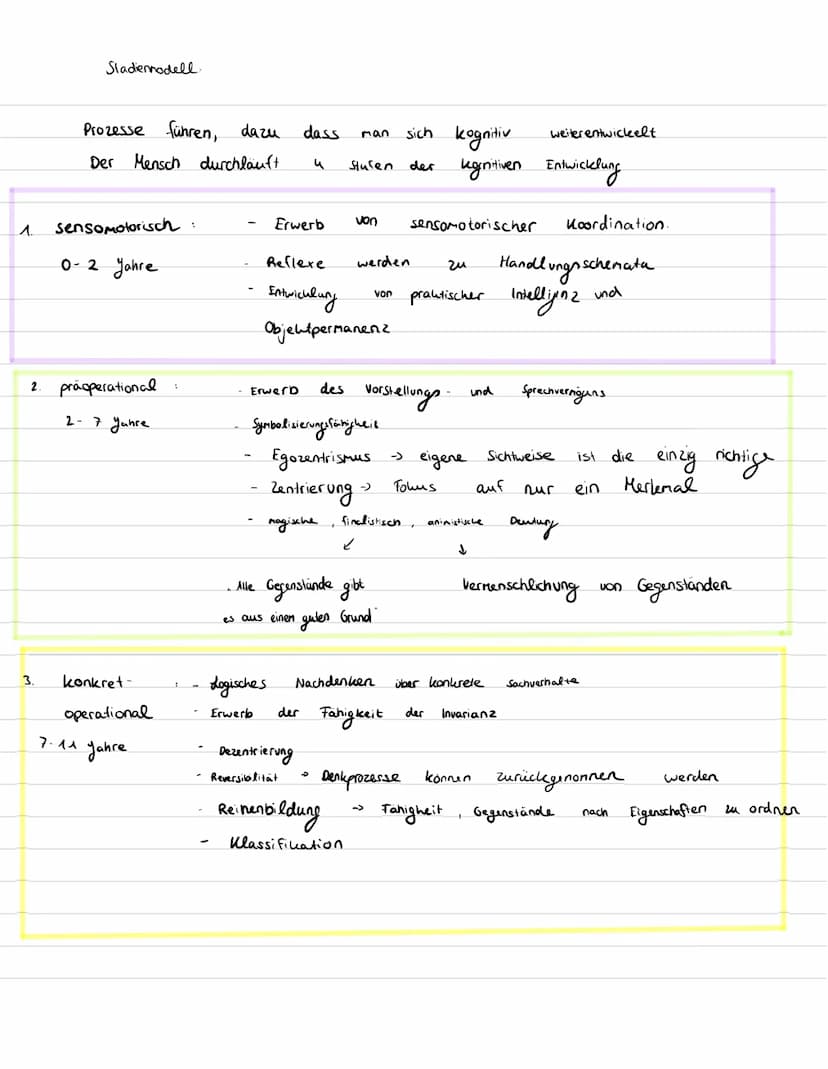 Stadienmodell.
Prozesse führen, dazu dass man sich kognitiv weiterentwickelt
Der Mensch durchläuft 4 Stufen der kognitiven Entwicklung
1. sensomotorisch : - Erwerb von sensomotorischer Koordination.
0-2 Jahre - Reflexe werden zu Handlungsschemata
- Entwicklung von praktischer Intelligenz und
Objektpermanenz
2. präoperational : - Erwerb des Vorstellungs- und Sprechvermögens
2-7 Jahre - Symbolisierungsfähigkeit
- Egozentrismus -> eigene Sichtweise ist die einzig richtige
- Zentrierung -> Fokus auf nur ein Merkmal
- magische, finalistisch, animistische Deutung
↙ ↓
. Alle Gegenstände gibt Vermenschlichung von Gegenständen
es aus einem guten Grund
3. konkret- : - Logisches Nachdenken über konkrete Sachverhalte
operational - Erwerb der Fähigkeit der Invarianz
7-11 Jahre - Dezentrierung
- Reversibilität -> Denkprozesse können zurückgenommen werden
- Reihenbildung -> Fähigkeit, Gegenstände nach Eigenschaften zu ordnen
- Klassifikation